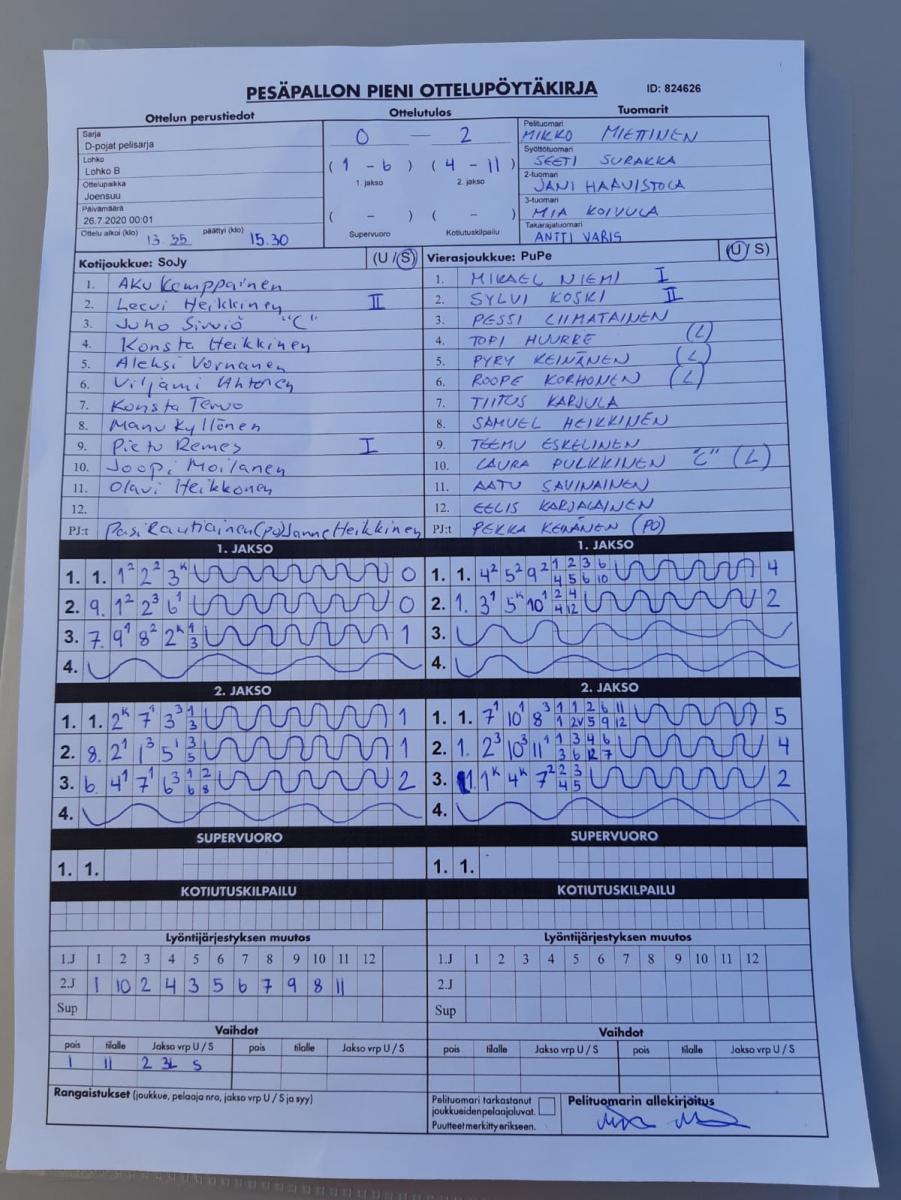 PESÄPALLON PIENI OTTELUPÖYTÄKIRJA ID: 824626
Ottelun perustiedot Ottelutulos Tuomarit
Sarja
D-pojat pelisarja
Lohko
Lohko B
Ottelupaikka
Joensuu
Päivämäärä
26.7.2020 00:01
Ottelu alkoi (klo) 13 35 päättyi (klo) 15.30
0 — 2
( 1 - 6 ) ( 4 - 11 )
1. jakso 2. jakso
( - ) ( - )
Supervuoro Kotiutuskilpailu
Pelituomari
MIKKO MIETTINEN
Syöttötuomari
SEETI SURAKKA
2-tuomari
JANI HAAVISTOLA
3-tuomari
MIA KOIVULA
Takarajatuomari
ANTTI VARIS
Kotijoukkue: SoJy (U / S)
1. Aku Kemppainen
2. Leevi Heikkinen II
3. Juho Sirviö "C"
4. Konsta Heikkinen
5. Aleksi Vornanen
6. Viljami Ahtonen
7. Konsta Tervo
8. Manu Kyllönen
9. Pietu Remes I
10. Joopi Moilanen
11. Olavi Heikkonen
12.
PJ:t Pasi Rautiainen (PO) Janne Heikkinen
Vierasjoukkue: PuPe (U / S)
1. MIKAEL NIEMI I
2. SYLVI KOSKI II
3. PESSI LIIMATAINEN
4. TOPI HUURRE (L)
5. PYRY KEINÄNEN (L)
6. ROOPE KORHONEN (L)
7. TIITUS KARJULA
8. SAMUEL HEIKKINEN
9. TEEMU ESKELINEN
10. LAURA PULKKINEN "C" (L)
11. AATU SAVINAINEN
12. EELIS KARJALAINEN
PJ:t PEKKA KENÄNEN (PO)
1. JAKSO
1. 1. 1² 2² 3ᴷ 0
2. 9. 1² 2³ 6¹ 0
3. 7. 9¹ 8² 2ᴷ 1 3 1
4.
1. JAKSO
1. 1. 4² 5² 9² 1 2 3 6 4 5 6 10 4
2. 1. 3¹ 5ᴷ 10¹ 2 4 4 12 2
3.
4.
2. JAKSO
1. 1. 2ᴷ 7¹ 3³ 1 3 1
2. 8. 2¹ 1³ 5¹ 3 5 1
3. 6. 4¹ 7¹ 6³ 1 2 6 8 2
4.
2. JAKSO
1. 1. 7¹ 10¹ 8³ 1 1 2 6 11 1 2V 5 9 12 5
2. 1. 2³ 10³ 11¹ 1 3 4 6 3 6 12 7 4
3. 1. 1ᴷ 4ᴷ 7² 2 3 4 5 2
4.
SUPERVUORO SUPERVUORO
1. 1. 1. 1.
KOTIUTUSKILPAILU KOTIUTUSKILPAILU
Lyöntijärjestyksen muutos
1.J 1 2 3 4 5 6 7 8 9 10 11 12
2.J 1 10 2 4 3 5 6 7 9 8 11
Sup
Lyöntijärjestyksen muutos
1.J 1 2 3 4 5 6 7 8 9 10 11 12
2.J
Sup
Vaihdot Vaihdot
pois tilalle Jakso vrp U / S pois tilalle Jakso vrp U / S
1 11 2 3L S
pois tilalle Jakso vrp U / S pois tilalle Jakso vrp U / S
Rangaistukset (joukkue, pelaaja nro, jakso vrp U / S ja syy)
Pelituomari tarkastanut
joukkueidenpelaajaluvat.
Puutteet merkitty erikseen.
Pelituomarin allekirjoitus